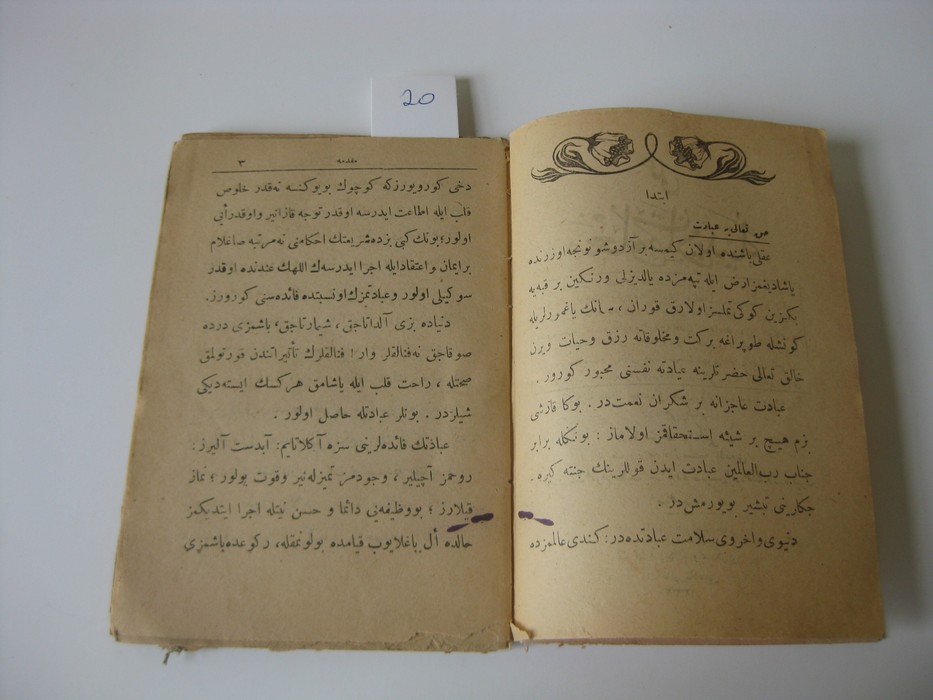 20
ابتدا
حق تعالی‌یه عبادت
عقلی باشنده اولان کیمسه بر آز دوشوننجه اوزرنده
یاشادیغمز ارض ایله تپه‌مزده یالدیزلی ورنکین بر قبه‌یه
بکزین کوکی تملسز اولارق قوران ، سمانك یاغمورلریله
کونشله طوپراغه برکت ومخلوقاته رزق وحیات ویرن
خالق تعالی حضرتلرینه عبادته نفسنی مجبور کورور .
عبادت عاجزانه بر شکران نعمت‌در . بوکا قارشی
بزم هیچ بر شیئه استحقاقمز اولاماز : بونکله برابر
جناب رب‌العالمین عبادت ایدن قوللرینك جنته کیره ـ
جکلرینی تبشیر بویورمش‌در .
دنیوی واخروی سلامت عبادتده‌در : کندی عالممزده
مقدمه ٣
دخی کورویورزکه کوچوك بویوکنه نه‌قدر خلوص
قلب ایله اطاعت ایدرسه اوقدر توجه قازانیر واوقدر أیی
اولور؛ بونك کبی بزده شریعتك احکامنی نه‌مرتبه صاغلام
بر ایمان واعتقاد ایله اجرا ایدرسه‌ك اللهك عندنده اوقدر
سوکیلی اولور وعبادتمزك اونسبتده فائده‌سنی کورورز.
دنیاده بزی آلداتاجق ، شیمارتاجق، باشمزی درده
صوقاجق نه‌فنالقلر وار ! فنالقلرك تأثیراتندن قورتولمق
صحتله ، راحت قلب ایله یاشامق هرکسك ایسته‌دیکی
شیلردر . بونلر عبادتله حاصل اولور .
عبادتك فائده‌لرینی سزه آکلاتایم: آبدست آلیرز :
روحمز آچیلیر ، وجودمز تمیزله‌نیر وقوت بولور ؛ نماز
قیلارز ؛ بووظیفه‌یی دائما و حسن نیتله اجرا ایتدیکمز
حالده أل باغلایوب قیامده بولونمقله، رکوعده باشمزی